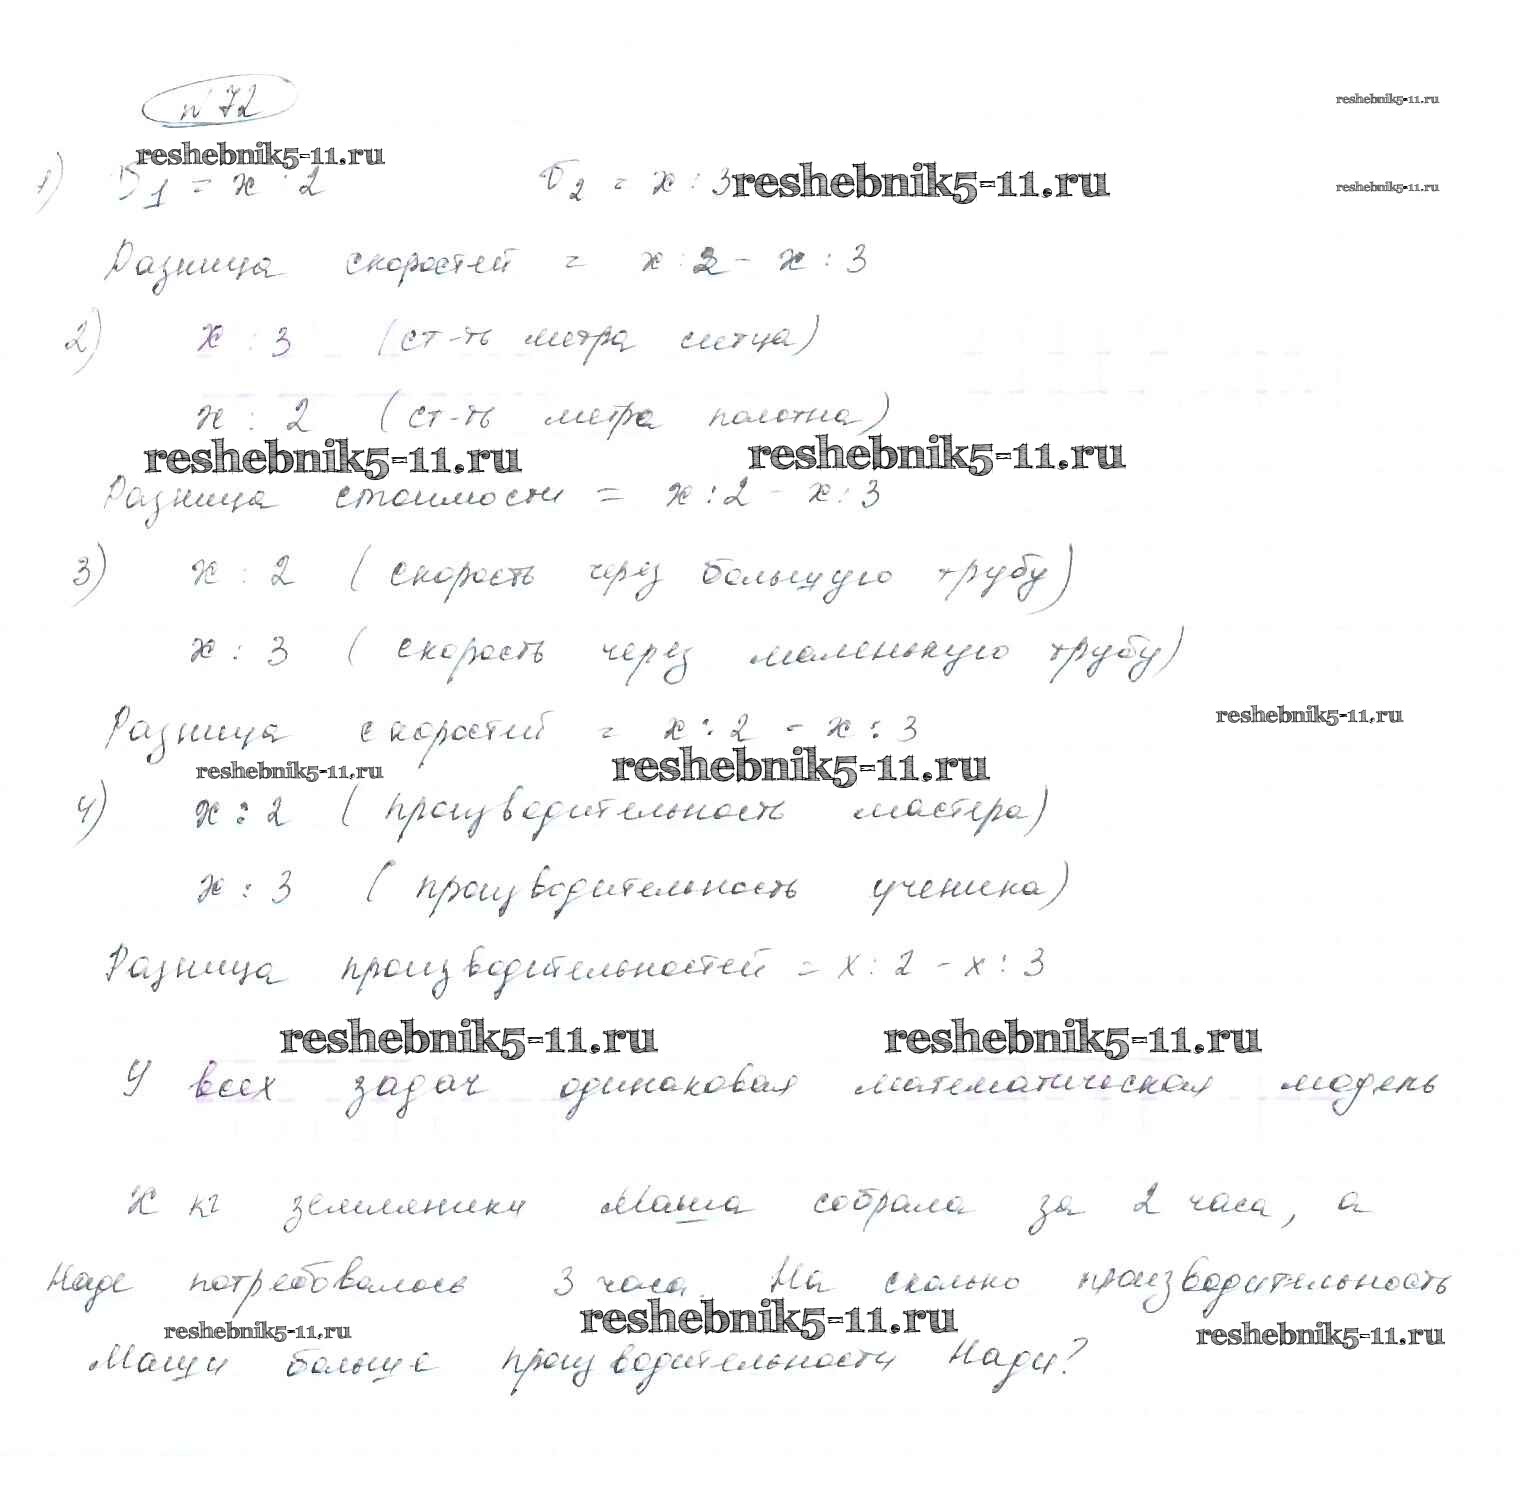 № 72
reshebnik5-11.ru
reshebnik5-11.ru
1) V1 = x : 2 V2 = x : 3
reshebnik5-11.ru
reshebnik5-11.ru
Разница скоростей = x : 2 - x : 3
2) x : 3 (ст-ть метра ситца)
x : 2 (ст-ть метра полотна)
reshebnik5-11.ru reshebnik5-11.ru
Разница стоимости = x : 2 - x : 3
3) x : 2 (скорость через большую трубу)
x : 3 (скорость через маленькую трубу)
reshebnik5-11.ru
Разница скоростей = x : 2 - x : 3
reshebnik5-11.ru reshebnik5-11.ru
4) x : 2 (производительность мастера)
x : 3 (производительность ученика)
Разница производительностей = x : 2 - x : 3
reshebnik5-11.ru reshebnik5-11.ru
У всех задач одинаковая математическая модель
X кг земляники Маша собрала за 2 часа, а
Наде потребовалось 3 часа. На сколько производительность
reshebnik5-11.ru reshebnik5-11.ru reshebnik5-11.ru
Маши больше производительности Нади?